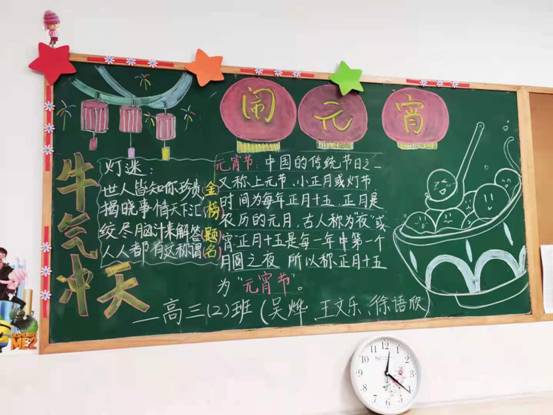 闹元宵
牛气冲天
灯迷:
世人皆知你珍贵(金
揭晓事情天下汇(榜
绞尽脑汁来解答(题
人人都有这称谓(名
元宵节:中国的传统节日之一
又称上元节、小正月或灯节
时间为每年正月十五、正月是
农历的元月,古人称为"夜"或
宵正月十五是每一年中第一个
月圆之夜 所以称正月十五
为"元宵节"。
—高三(2)班(吴烨 王文乐、徐语欣)